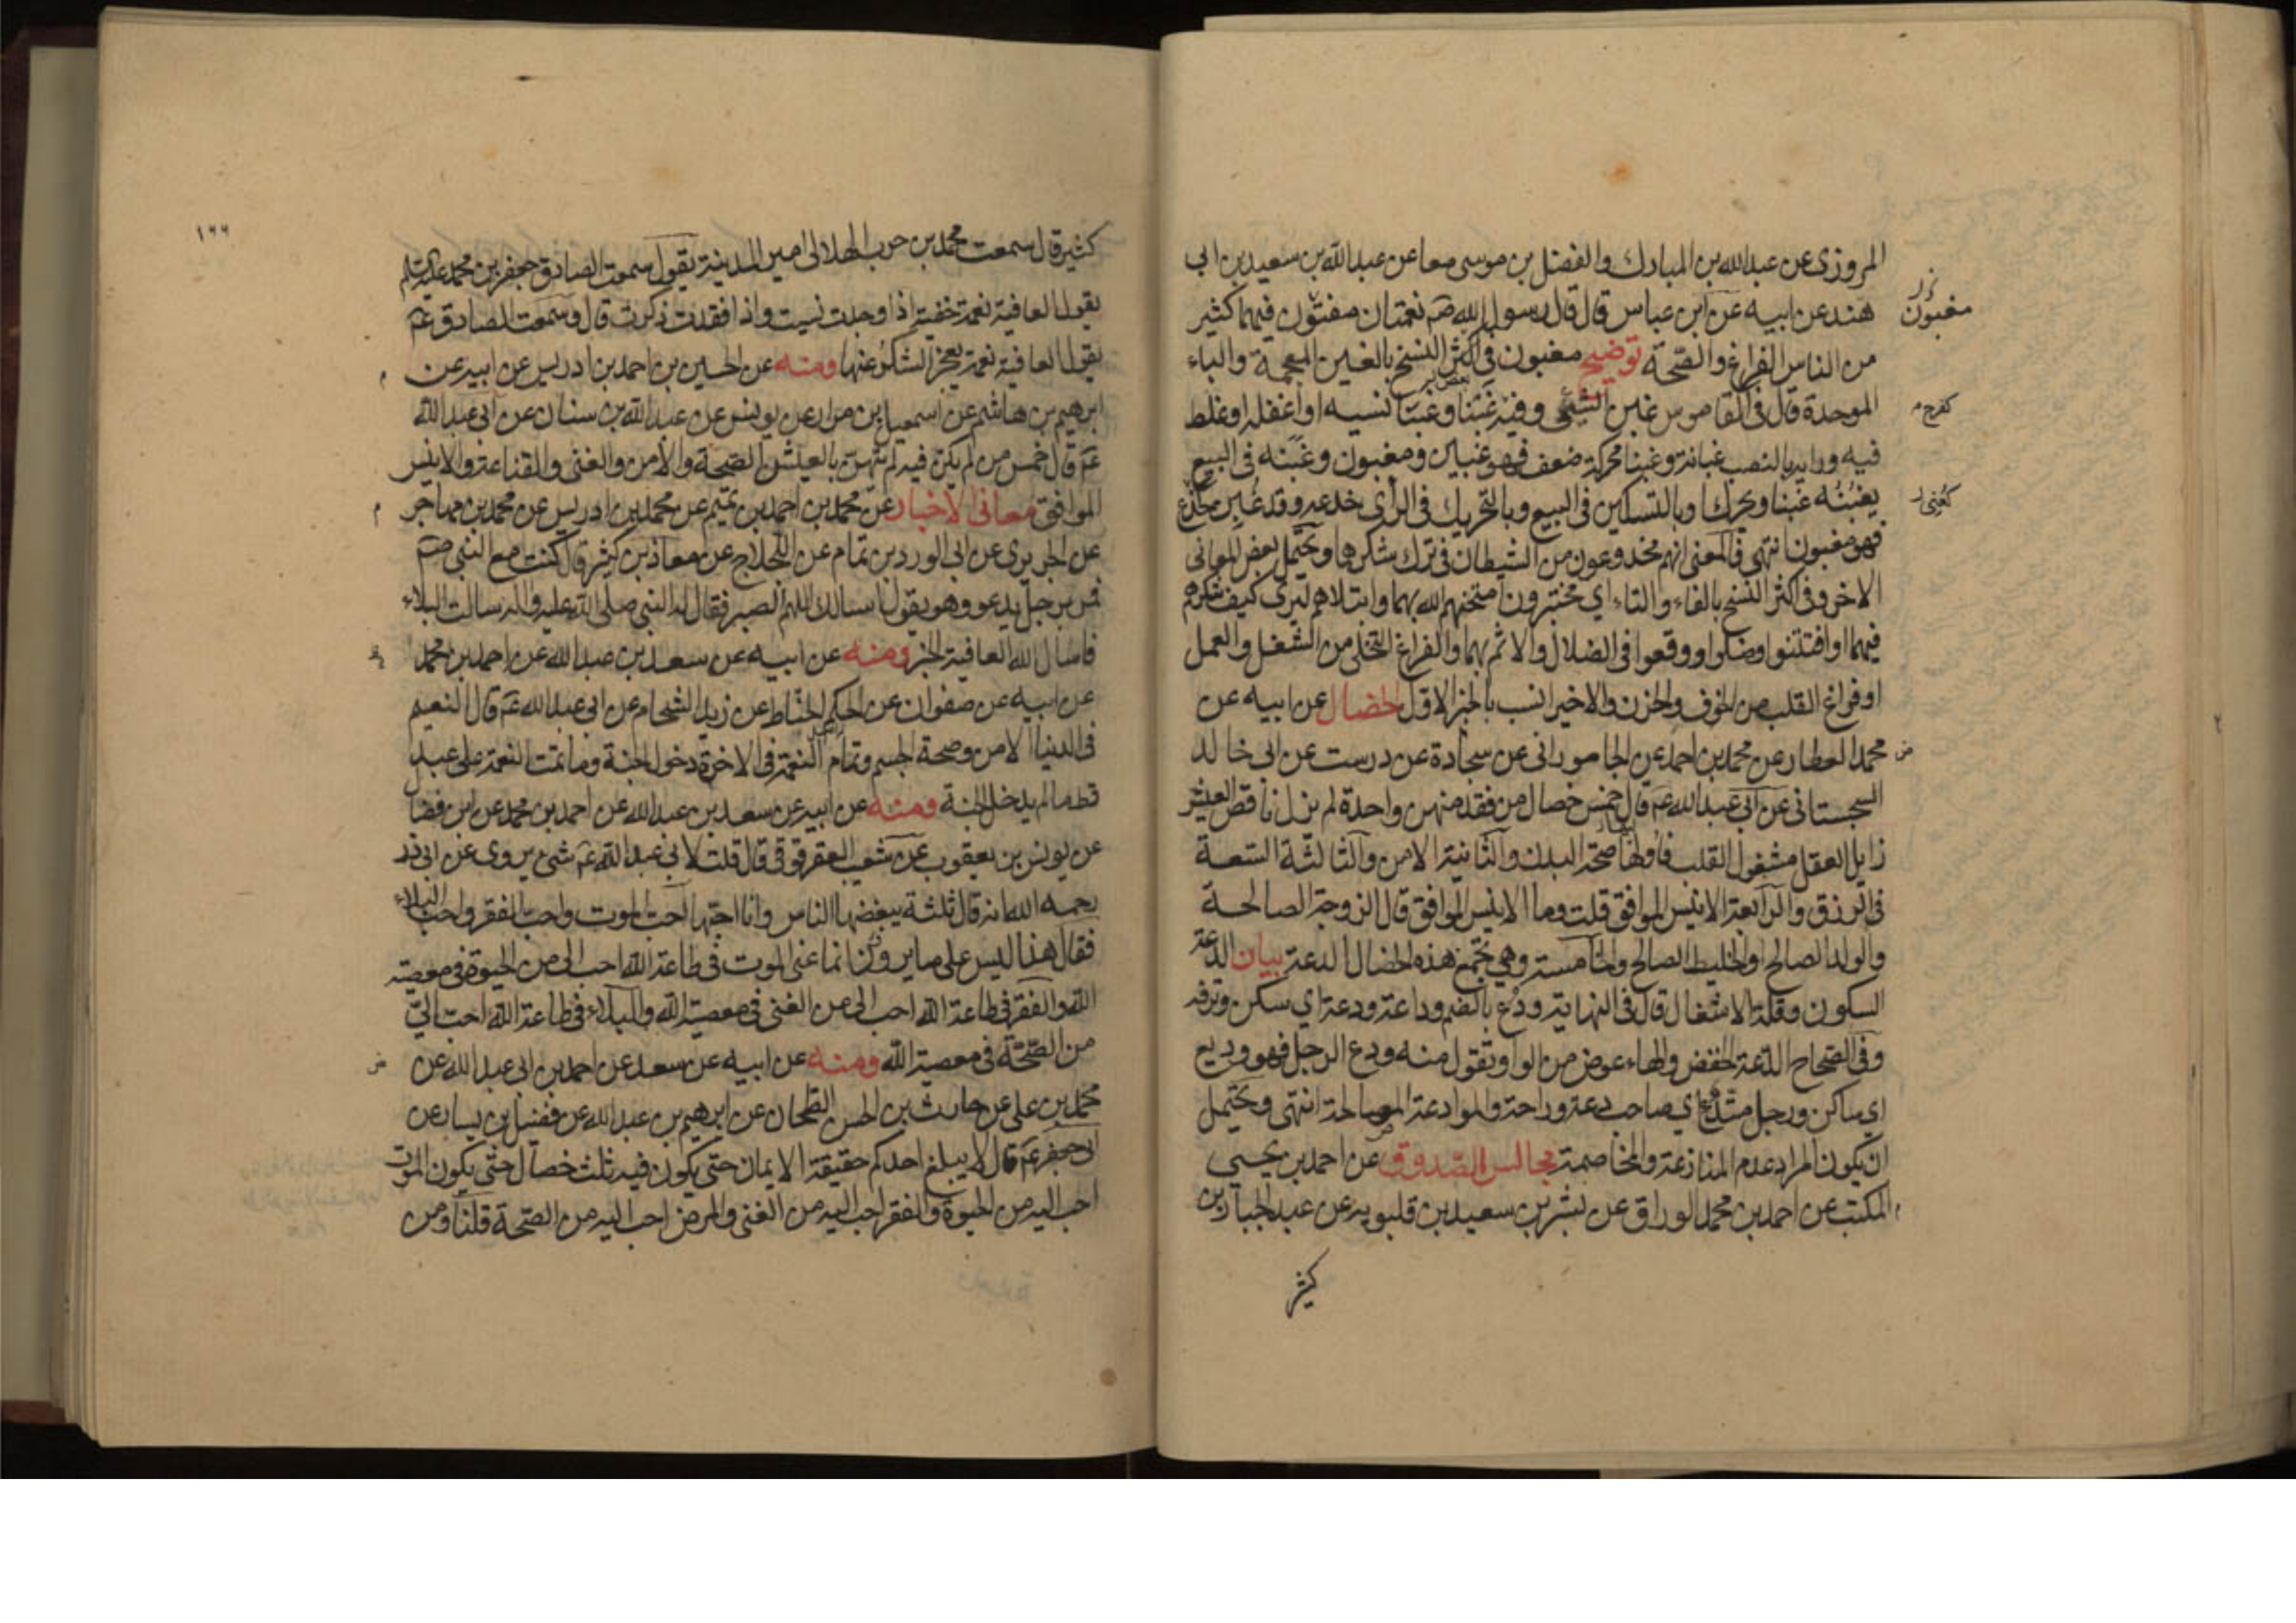 المروزى عن عبدالله بن المبارك والفضل بن موسى معا عن عبدالله بن سعيد بن ابى
هند عن ابيه عن ابن عباس قال قال رسول الله صم نعمتان مفتون فيهما كثير
مغبون
من الناس الفراغ والصحة توضيح مغبون فى اكثر النسخ بالغين المعجمة والباء
الموحدة قال فى القاموس غبن الشئ وفيه غبنا وغبنا نسيه او اغفله او غلط
كفرح م
فيه ورايه بالنصب غبانة وغبنا محركة ضعف فهو غبين ومغبون وغبنه فى البيع
يغبنه غبنا ويحرك او بالتسكين فى البيع وبالتحريك فى الراى خدعه وقد غبن
كعنى
فهو مغبون انتهى فالمعنى انهم مخدوعون من الشيطان فى ترك شكرها ويحتمل بعض المعانى
الاخر وفى اكثر النسخ بالفاء والتاء اي مختبرون امتحنهم الله بهما وابتلاهم ليرى كيف شكرهم
فيهما او افتتنوا وضلوا ووقعوا فى الضلال والاثم بهما والفراغ التخلى من الشغل والعمل
او فراغ القلب من الخوف والحزن والاخير انسب بالخبر الاول الخصال عن ابيه عن
محمد العطار عن محمد بن احمد عن الجامورانى عن سجادة عن درست عن ابى خالد
السجستانى عن ابى عبدالله عم قال خمس خصال من فقد منهن واحدة لم يزل ناقص العيش
زايل العقل مشغول القلب فاولها صحة البدن والثانية الامن والثالثة السعة
فى الرزق والرابعة الانيس الموافق قلت وما الانيس الموافق قال الزوجة الصالحة
والولد الصالح والخليط الصالح والخامسة وهي تجمع هذه الخصال الدعة بيان الدعة
السكون وقلة الاشغال قال فى النهاية ودع بالضم وداعة ودعة اي سكن وترفه
وفى الصحاح الدعة الخفض والهاء عوض من الواو وتقول منه ودع الرجل فهو وديع
اي ساكن ورجل متدع اي صاحب دعة وراحة والموادعة المصالحة انتهى ويحتمل
ان يكون المراد عدم المنازعة والمخاصمة مجالس الصدوق عن احمد بن يحيى
المكتب عن احمد بن محمد الوراق عن بشر بن سعيد بن قلبويه عن عبدالجبار بن
كثير
١٦٦
كثير قال سمعت محمد بن حرب الهلالى امير المدينة يقول سمعت الصادق جعفر بن محمد
يقول العافية نعمة خفية اذا وجدت نسيت واذا فقدت ذكرت قال وسمعت الصادق عم
يقول العافية نعمة يعجز الشكر عنها ومنه عن الحسين بن احمد بن ادريس عن ابيه عن
ابرهيم بن هاشم عن اسمعيل بن مرار عن يونس عن عبدالله بن سنان عن ابى عبدالله
عم قال خمس من لم يكن فيه لم يتهن بالعيش الصحة والامن والغنى والقناعة والانيس
الموافق معانى الاخبار عن محمد بن احمد بن تميم عن محمد بن ادريس عن محمد بن مهاجر
عن الجريرى عن ابى الورد بن تمام عن اللجلاج عن معاذ بن كثير قال كنت مع النبى صم
فمر برجل يدعو وهو يقول اسالك اللهم الصبر فقال له النبى صلى الله عليه واله سالت البلاء
فاسال الله العافية الخبر ومنه عن ابيه عن سعد بن عبدالله عن احمد بن محمد
عن ابيه عن صفوان عن الحكم الحناط عن زيد الشحام عن ابى عبدالله عم قال النعيم
فى الدنيا الامن وصحة الجسم وتمام النعمة فى الاخرة دخول الجنة وما تمت النعمة على عبد
قط ما لم يدخل الجنة ومنه عن ابيه عن سعد بن عبدالله عن احمد بن محمد عن ابن فضال
عن يونس بن يعقوب عن شعيب العقرقوقى قال قلت لابى عبدالله عم شئ يروى عن ابى ذر
رحمه الله انه قال ثلثة يبغضها الناس وانا احبها احب الموت واحب الفقر واحب البلاء
فقال هذا ليس على ما يروون انما عنى الموت فى طاعة الله احب الى من الحيوة فى معصية
الله والفقر فى طاعة الله احب الى من الغنى فى معصية الله والبلاء فى طاعة الله احب الي
من الصحة فى معصية الله ومنه عن ابيه عن سعد عن احمد بن ابى عبدالله عن
محمد بن على عن حارث بن الحسن الطحان عن ابرهيم بن عبدالله عن فضيل بن يسار عن
ابى جعفر عم قال لا يبلغ احدكم حقيقة الايمان حتى يكون فيه ثلث خصال حتى يكون الموت
احب اليه من الحيوة والفقر احب اليه من الغنى والمرض احب اليه من الصحة قلنا ومن